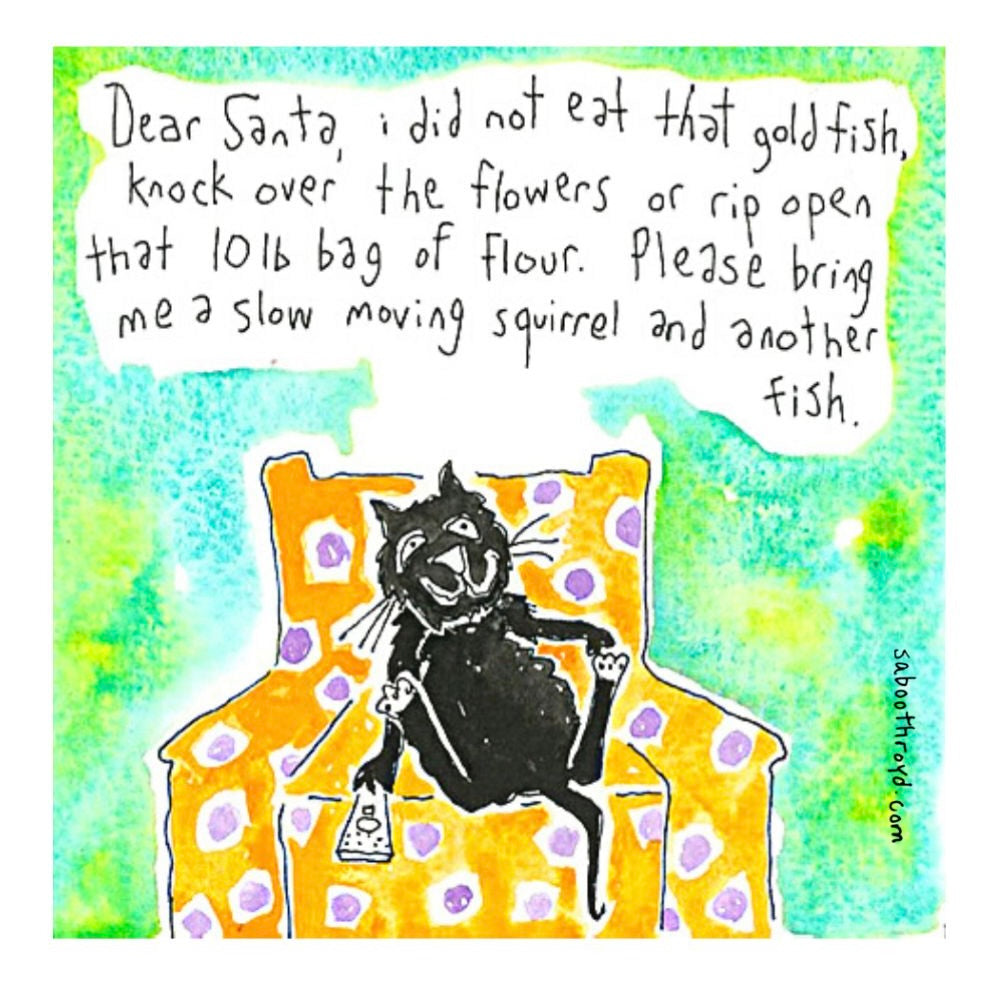 Dear Santa, i did not eat that gold fish,
knock over the flowers or rip open
that 10 lb bag of flour. Please bring
me a slow moving squirrel and another
fish.
saboothroyd.com